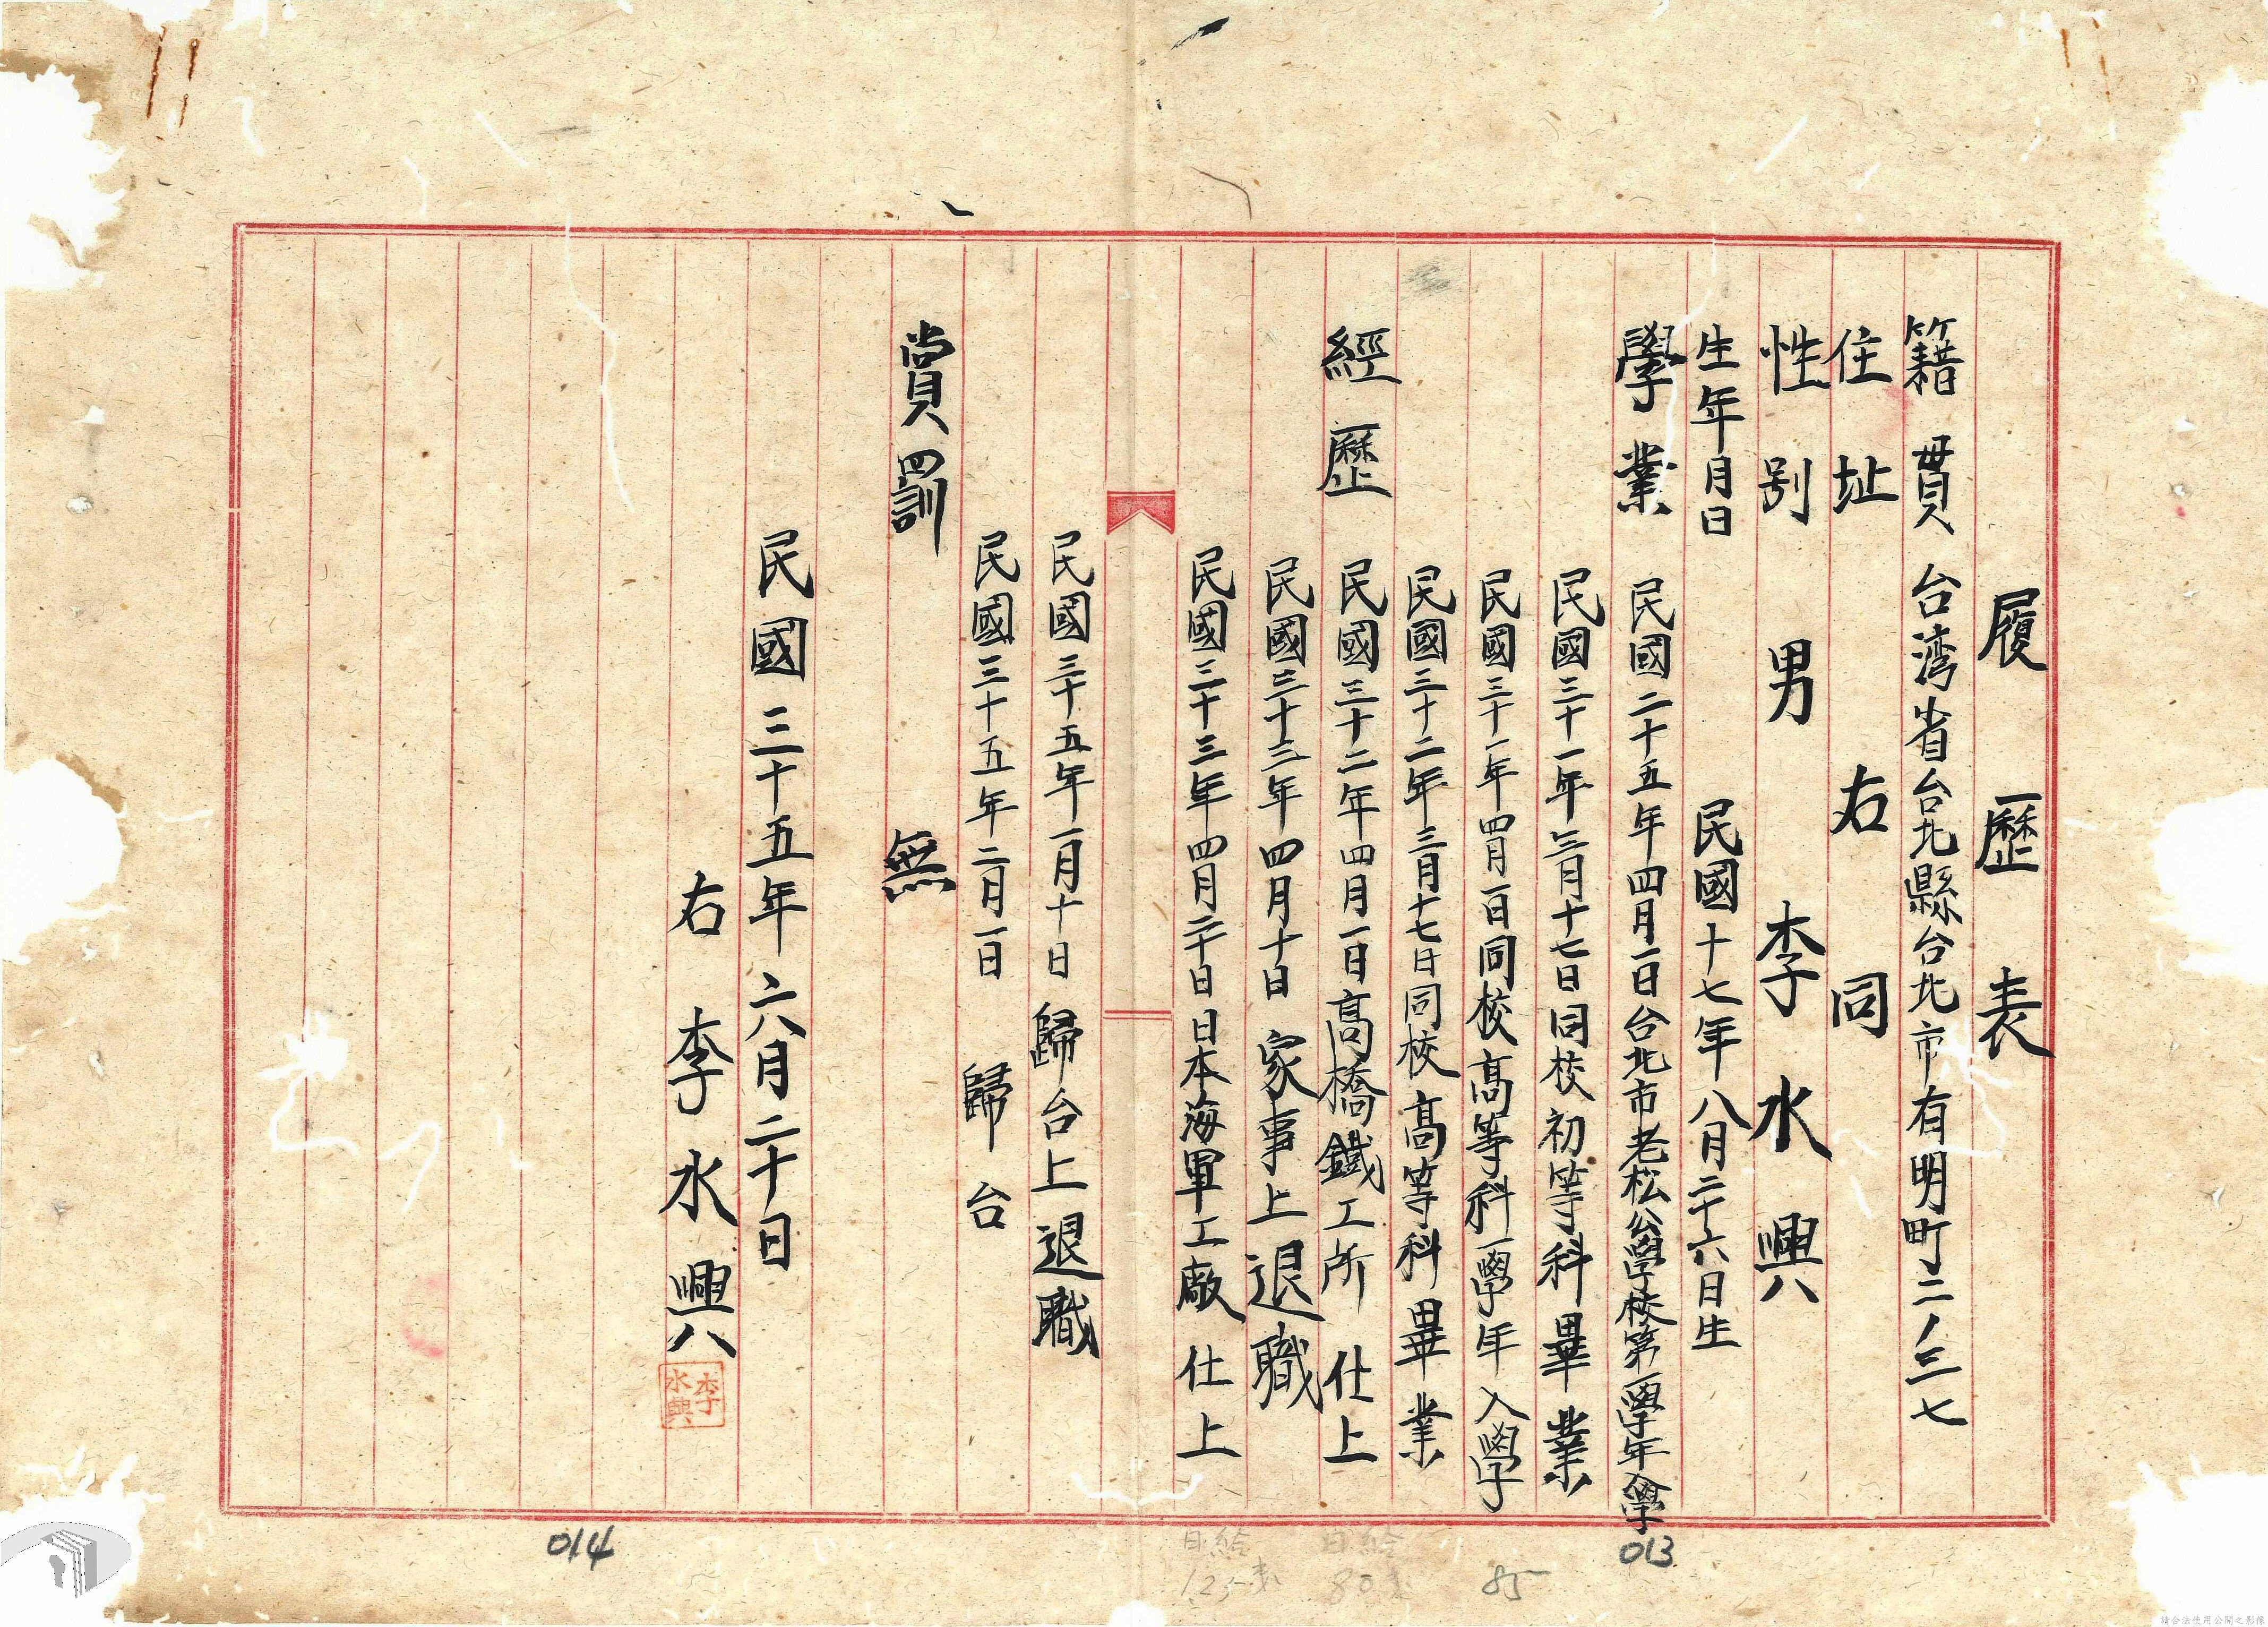 履歷表
籍貫 台湾省台北縣台北市有明町二ノ三七
住址 右同
性別 男 李水興
生年月日 民國十七年八月二十六日生
學業 民國二十五年四月一日台北市老松公學校第一學年入學
民國三十一年三月十七日同校初等科畢業
民國三十一年四月一日同校高等科一學年入學
民國三十二年三月十七日同校高等科畢業
經歷 民國三十二年四月一日高橋鐵工所仕上
民國三十三年四月十日 家事上退職
民國三十三年四月二十日日本海軍工廠仕上
民國三十五年一月十日歸台上退職
民國三十五年二月一日 歸台
賞罰 無
民國三十五年六月二十日
右 李水興
李水興
013
85
日給 80
日給 125
014
請合法使用公開之影像